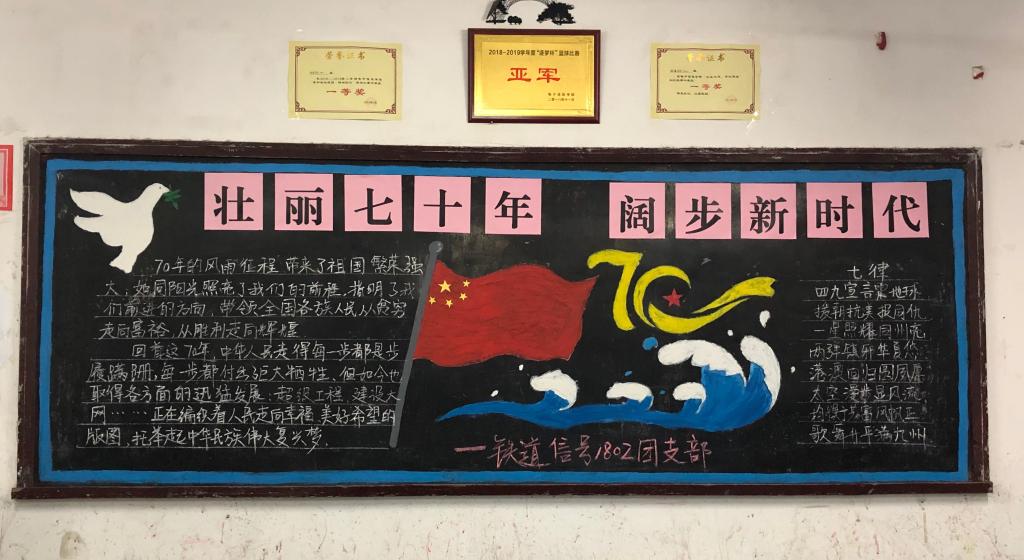 荣誉证书
一等奖
2018-2019学年度"逐梦杯"篮球比赛
亚军
一等奖
壮丽七十年 阔步新时代
70年的风雨征程 带来了祖国繁荣强
大,如同阳光照亮了我们的前程,指明了我
们前进的方向,带领全国各族人民,从贫穷
走向富裕,从胜利走向辉煌
回首这70年,中华人民走得每一步都是步
履蹒跚,每一步都付出巨大牺牲,但如今也
取得各方面的迅猛发展,超级工程 建设大
网……正在编织着人民走向幸福 美好希望的
版图,托举起中华民族伟大复兴梦.
70
七律
四九宣言震地球
援朝抗美报同仇
港澳回归圆夙愿
歌舞升平满九州
一铁道信号1802团支部